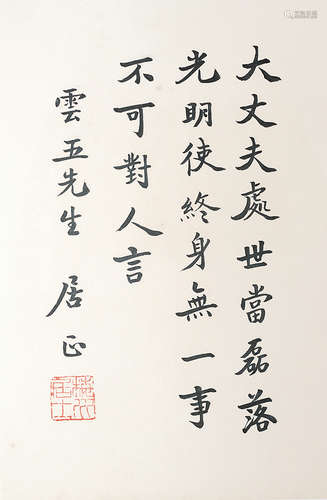 大丈夫處世當磊落
光明使終身無一事
不可對人言
雲五先生 居正